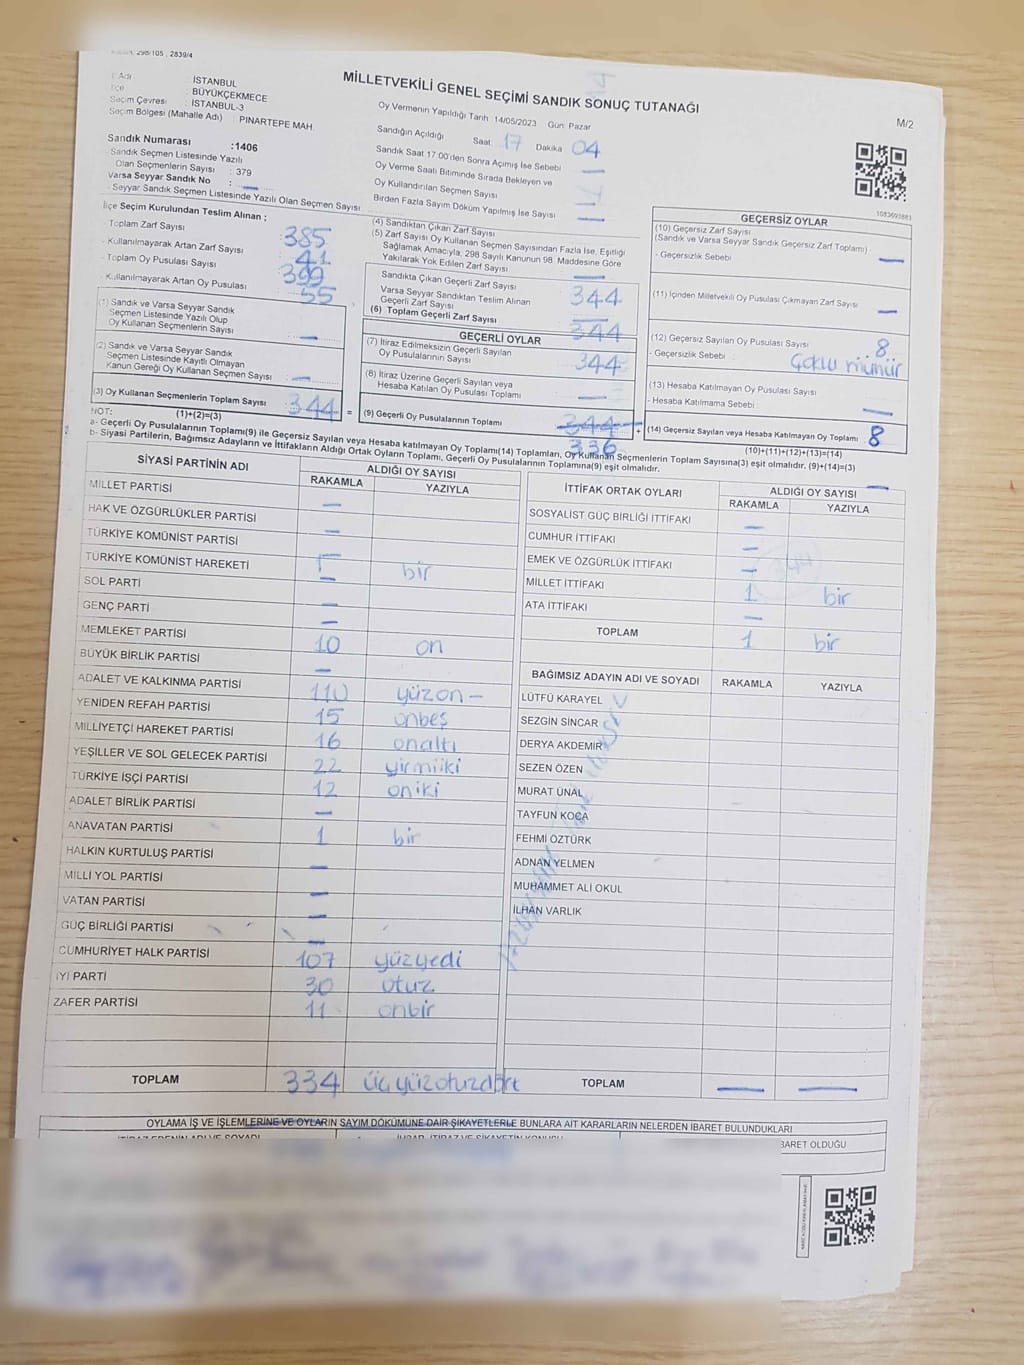 298/105 , 2839/4
MİLLETVEKİLİ GENEL SEÇİMİ SANDIK SONUÇ TUTANAĞI
M/2
İl Adı : İSTANBUL
İlçe : BÜYÜKÇEKMECE
Seçim Çevresi : İSTANBUL-3
Seçim Bölgesi (Mahalle Adı) : PINARTEPE MAH.
Sandık Numarası :1406
Sandık Seçmen Listesinde Yazılı
Olan Seçmenlerin Sayısı : 379
Varsa Seyyar Sandık No : —
Seyyar Sandık Seçmen Listesinde Yazılı Olan Seçmen Sayısı
Oy Vermenin Yapıldığı Tarih: 14/05/2023 Gün: Pazar
Sandığın Açıldığı Saat: 17 Dakika 04
Sandık Saat 17:00'den Sonra Açımış İse Sebebi —
Oy Verme Saati Bitiminde Sırada Bekleyen ve
Oy Kullandırılan Seçmen Sayısı
Birden Fazla Sayım Döküm Yapılmış İse Sayısı —
1083693883
İlçe Seçim Kurulundan Teslim Alınan ;
Toplam Zarf Sayısı : 385
Kullanılmayarak Artan Zarf Sayısı : 41
Toplam Oy Pusulası Sayısı : 399
Kullanılmayarak Artan Oy Pusulası : 55
(1) Sandık ve Varsa Seyyar Sandık
Seçmen Listesinde Yazılı Olup
Oy Kullanan Seçmenlerin Sayısı —
(2) Sandık ve Varsa Seyyar Sandık
Seçmen Listesinde Kayıtlı Olmayan
Kanun Gereği Oy Kullanan Seçmen Sayısı —
(3) Oy Kullanan Seçmenlerin Toplam Sayısı 344 =
(1)+(2)=(3)
(4) Sandıktan Çıkan Zarf Sayısı
(5) Zarf Sayısı Oy Kullanan Seçmen Sayısından Fazla İse, Eşitliği
Sağlamak Amacıyla, 298 Sayılı Kanunun 98. Maddesine Göre
Yakılarak Yok Edilen Zarf Sayısı —
Sandıkta Çıkan Geçerli Zarf Sayısı 344
Varsa Seyyar Sandıktan Teslim Alınan
Geçerli Zarf Sayısı —
(6) Toplam Geçerli Zarf Sayısı 344
GEÇERLİ OYLAR
(7) İtiraz Edilmeksizin Geçerli Sayılan
Oy Pusulalarının Sayısı 344
(8) İtiraz Üzerine Geçerli Sayılan veya
Hesaba Katılan Oy Pusulası Toplamı —
(9) Geçerli Oy Pusulalarının Toplamı 344 +
336
GEÇERSİZ OYLAR
(10) Geçersiz Zarf Sayısı
(Sandık ve Varsa Seyyar Sandık Geçersiz Zarf Toplamı)
- Geçersizlik Sebebi —
(11) İçinden Milletvekili Oy Pusulası Çıkmayan Zarf Sayısı —
(12) Geçersiz Sayılan Oy Pusulası Sayısı 8
- Geçersizlik Sebebi : Çoklu mümür
(13) Hesaba Katılmayan Oy Pusulası Sayısı
- Hesaba Katılmama Sebebi —
(14) Geçersiz Sayılan veya Hesaba Katılmayan Oy Toplamı 8
(10)+(11)+(12)+(13)=(14)
NOT:
a- Geçerli Oy Pusulalarının Toplamı(9) ile Geçersiz Sayılan veya Hesaba katılmayan Oy Toplamı(14) Toplamları, Oy Kullanan Seçmenlerin Toplam Sayısına(3) eşit olmalıdır. (9)+(14)=(3)
b- Siyasi Partilerin, Bağımsız Adayların ve İttifakların Aldığı Ortak Oyların Toplamı, Geçerli Oy Pusulalarının Toplamına(9) eşit olmalıdır.
SİYASİ PARTİNİN ADI ALDIĞI OY SAYISI
RAKAMLA YAZIYLA
MİLLET PARTİSİ —
HAK VE ÖZGÜRLÜKLER PARTİSİ —
TÜRKİYE KOMÜNİST PARTİSİ
TÜRKİYE KOMÜNİST HAREKETİ 1 bir
SOL PARTİ —
GENÇ PARTİ —
MEMLEKET PARTİSİ 10 on
BÜYÜK BİRLİK PARTİSİ —
ADALET VE KALKINMA PARTİSİ 110 yüzon —
YENİDEN REFAH PARTİSİ 15 onbeş
MİLLİYETÇİ HAREKET PARTİSİ 16 onaltı
YEŞİLLER VE SOL GELECEK PARTİSİ 22 yirmiiki
TÜRKİYE İŞÇİ PARTİSİ 12 oniki
ADALET BİRLİK PARTİSİ —
ANAVATAN PARTİSİ 1 bir
HALKIN KURTULUŞ PARTİSİ —
MİLLİ YOL PARTİSİ —
VATAN PARTİSİ —
GÜÇ BİRLİĞİ PARTİSİ —
CUMHURİYET HALK PARTİSİ 107 yüzyedi
İYİ PARTİ 30 otuz
ZAFER PARTİSİ 11 onbir
TOPLAM 334 üçyüzotuzdört
İTTİFAK ORTAK OYLARI ALDIĞI OY SAYISI
RAKAMLA YAZIYLA
SOSYALİST GÜÇ BİRLİĞİ İTTİFAKI —
CUMHUR İTTİFAKI —
EMEK VE ÖZGÜRLÜK İTTİFAKI —
MİLLET İTTİFAKI 1 bir
ATA İTTİFAKI —
TOPLAM 1 bir
BAĞIMSIZ ADAYIN ADI VE SOYADI RAKAMLA YAZIYLA
LÜTFÜ KARAYEL
SEZGİN SİNCAR
DERYA AKDEMİR
SEZEN ÖZEN
MURAT ÜNAL
TAYFUN KOCA
FEHMİ ÖZTÜRK
ADNAN YELMEN
MUHAMMET ALİ OKUL
İLHAN VARLIK
TOPLAM — —
OYLAMA İŞ VE İŞLEMLERİNE VE OYLARIN SAYIM DÖKÜMÜNE DAİR ŞİKAYETLERLE BUNLARA AİT KARARLARIN NELERDEN İBARET BULUNDUKLARI
İBARET OLDUĞU